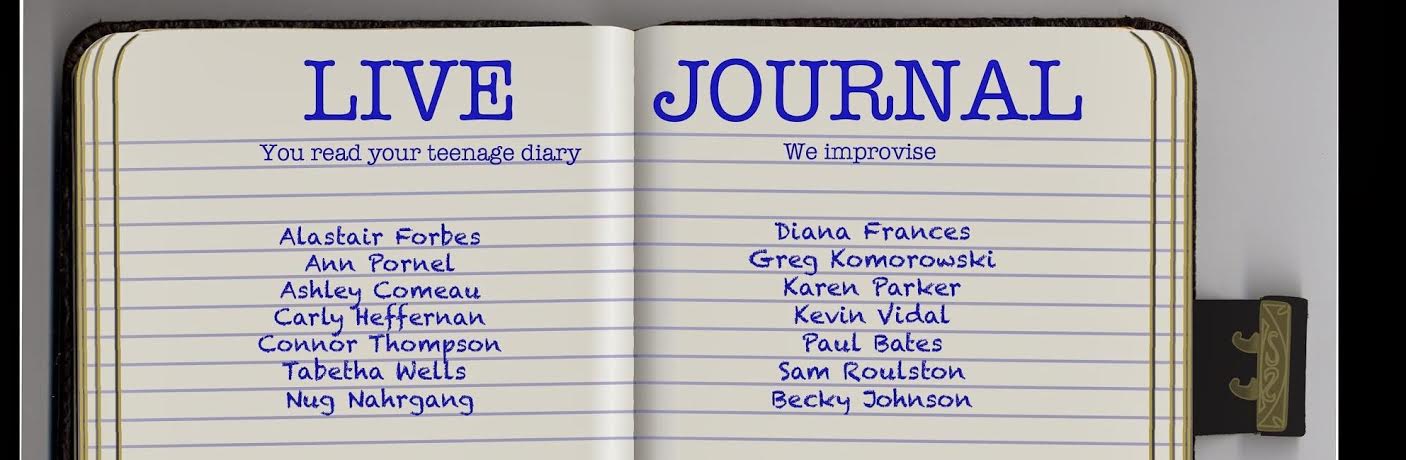 LIVE JOURNAL
You read your teenage diary
We improvise
Alastair Forbes
Ann Pornel
Ashley Comeau
Carly Heffernan
Connor Thompson
Tabetha Wells
Nug Nahrgang
Diana Frances
Greg Komorowski
Karen Parker
Kevin Vidal
Paul Bates
Sam Roulston
Becky Johnson